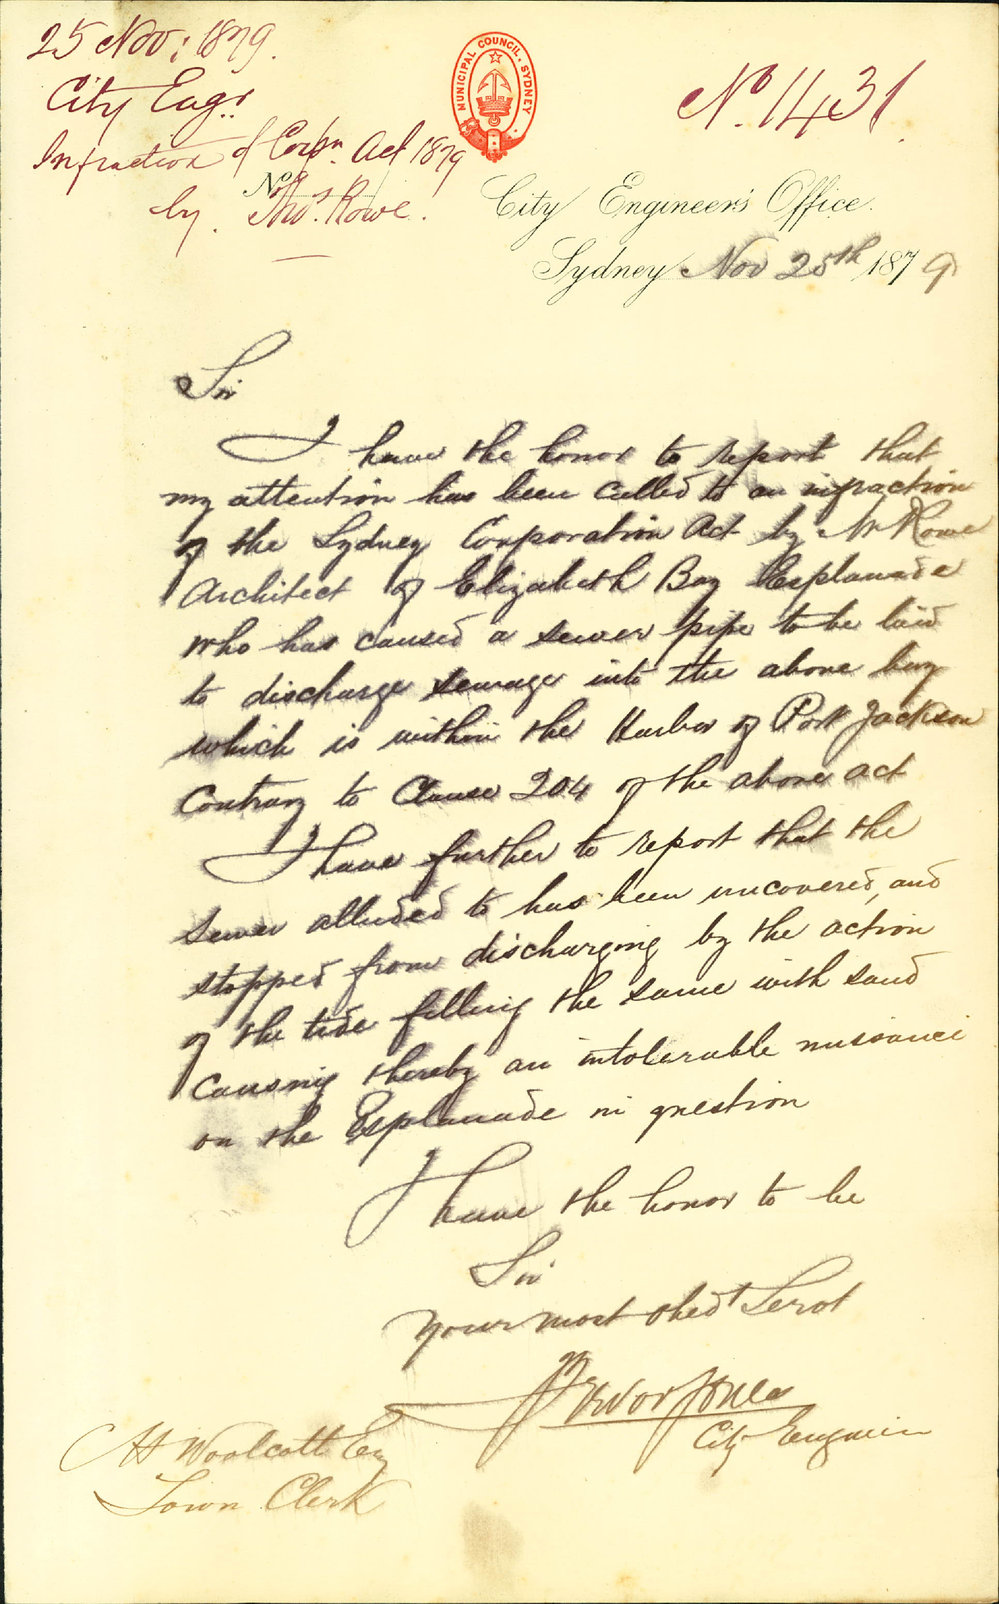 25 Nov: 1879.
City Engr.
Infraction of Corpn. Act 1879
by Thos. Rowe.
No.
MUNICIPAL COUNCIL. SYDNEY.
No. 1431
City Engineer's Office.
Sydney Nov 25th 1879
Sir
I have the honor to report that
my attention has been called to an infraction
of the Sydney Corporation Act by Mr Rowe
Architect of Elizabeth Bay Esplanade
who has caused a sewer pipe to be laid
to discharge sewage into the above bay
which is within the Harbor of Port Jackson
Contrary to Clause 204 of the above act
I have further to report that the
sewer alluded to has been uncovered, and
stopped from discharging by the action
of the tide filling the same with sand
causing thereby an intolerable nuisance
on the Esplanade in question
I have the honor to be
Sir
Your most obedt Servt
Trevor Jones
City Engineer
Woolcott Esq
Town Clerk